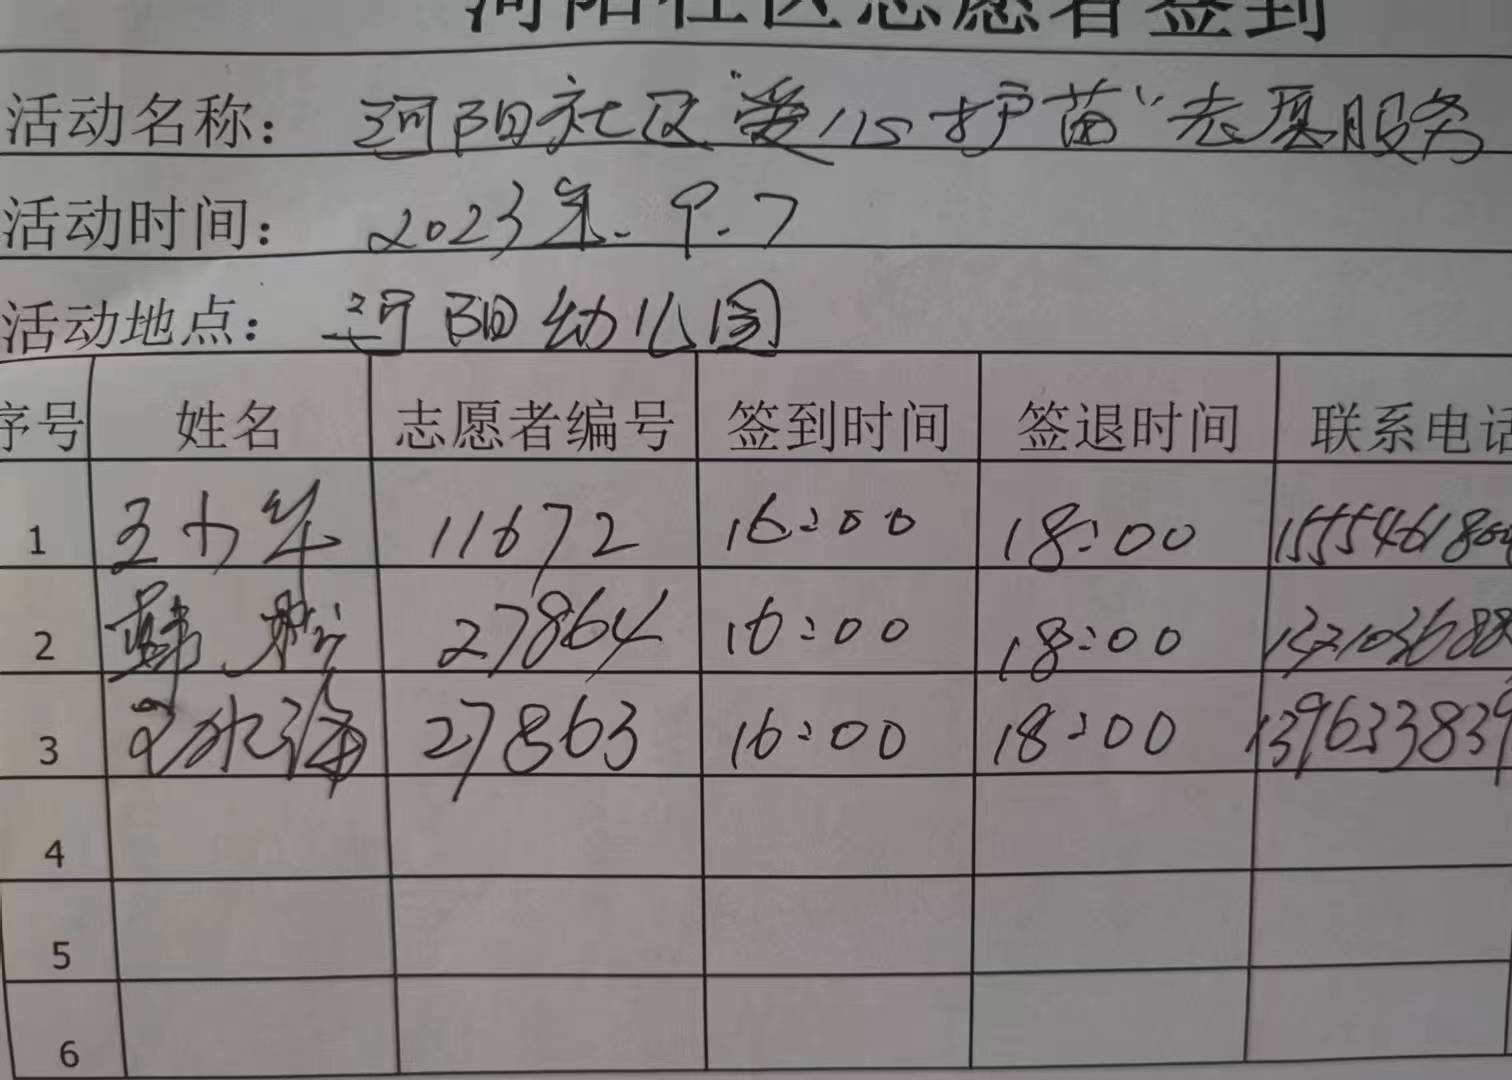 河阳社区志愿者签到
活动名称： 河阳社区“爱心护苗”志愿服务
活动时间： 2023年.9.7
活动地点： 河阳幼儿园
序号 姓名 志愿者编号 签到时间 签退时间 联系电话
1 11672 16:00 18:00 155546180
2 韩 27864 16:00 18:00
3 27863 16:00 18:00 139633839
4
5
6